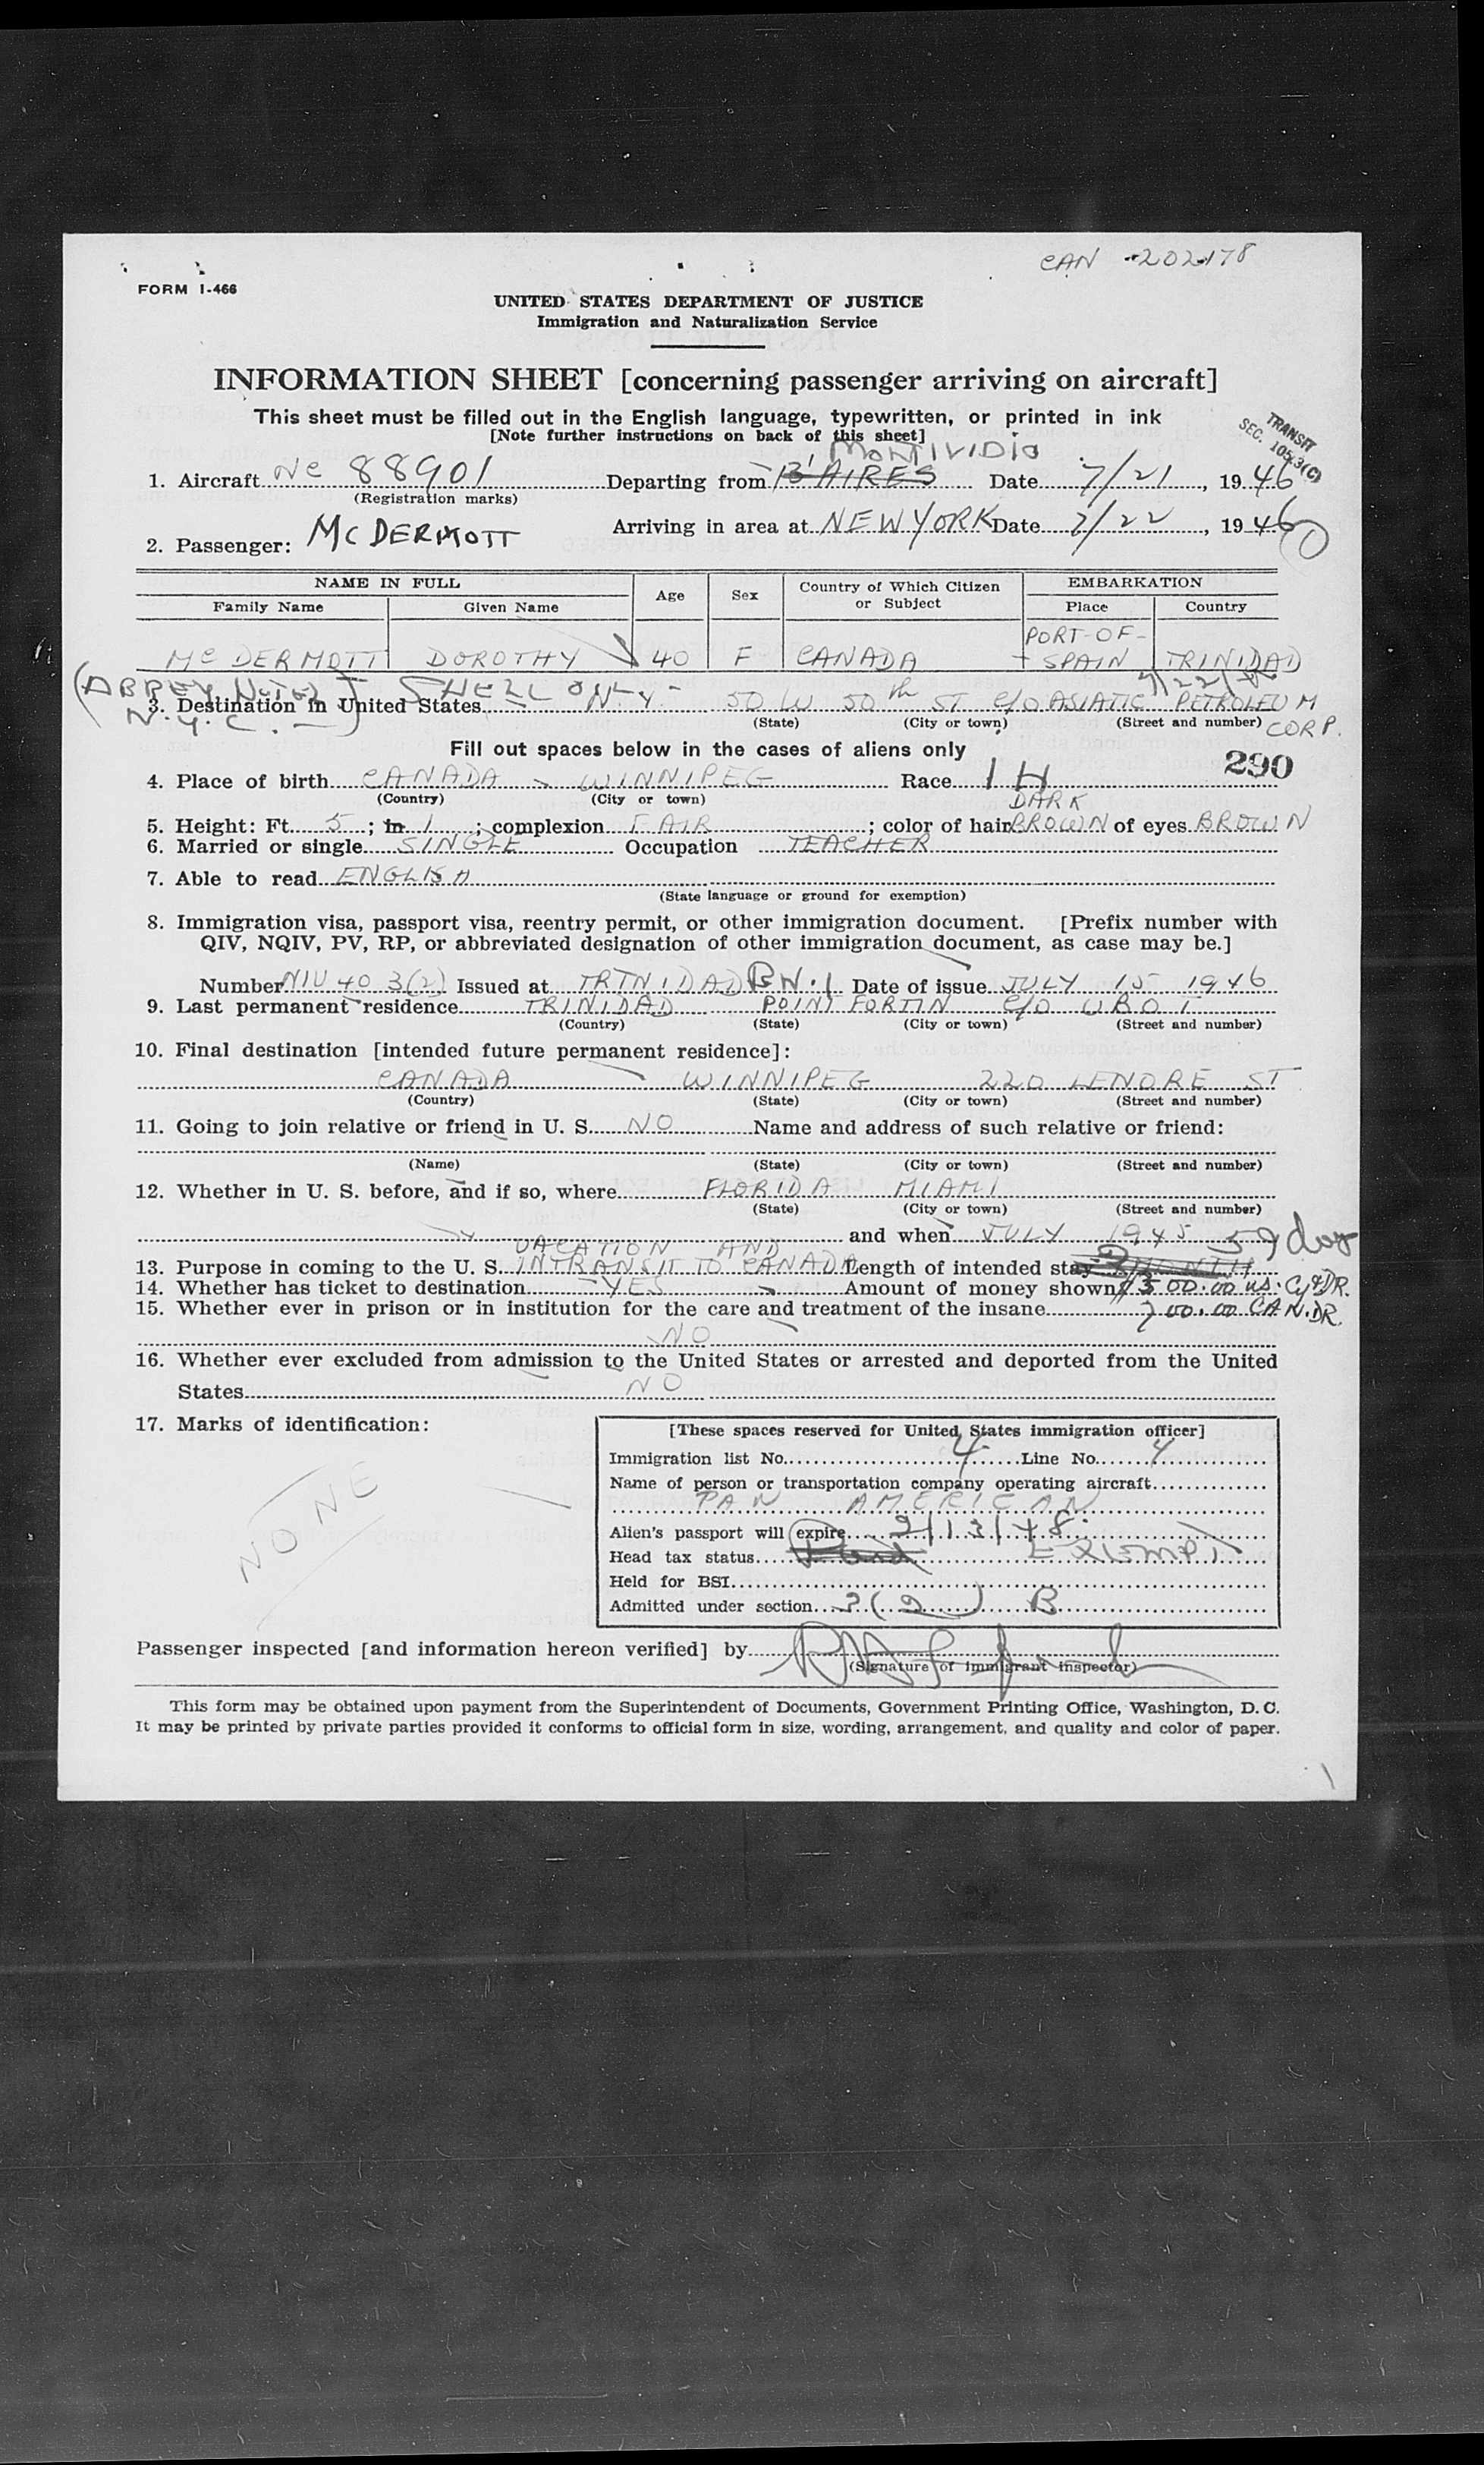 CAN 202178
FORM I-466
UNITED STATES DEPARTMENT OF JUSTICE
Immigration and Naturalization Service
INFORMATION SHEET [concerning passenger arriving on aircraft]
This sheet must be filled out in the English language, typewritten, or printed in ink
[Note further instructions on back of this sheet]
TRANSIT
SEC. 105.3(C)
MONTIVIDIO
1. Aircraft NC 88901 Departing from B'AIRES Date 7/21, 1946
(Registration marks)
Arriving in area at NEW YORK Date 7/22, 1946
2. Passenger: MCDERMOTT
NAME IN FULL Age Sex Country of Which Citizen or Subject EMBARKATION
Family Name Given Name Place Country
MCDERMOTT DOROTHY 40 F CANADA PORT-OF-SPAIN TRINIDAD
(ABBEY HOTEL SHELL ONLY 7/22/
3. Destination in United States N.Y. 50 W 50th ST C/O ASIATIC PETROLEUM CORP.
N.Y.C.
(State) (City or town) (Street and number)
Fill out spaces below in the cases of aliens only
290
4. Place of birth CANADA - WINNIPEG Race IH
(Country) (City or town)
5. Height: Ft. 5; in 1; complexion FAIR; color of hair DARK BROWN of eyes BROWN
6. Married or single SINGLE Occupation TEACHER
7. Able to read ENGLISH
(State language or ground for exemption)
8. Immigration visa, passport visa, reentry permit, or other immigration document. [Prefix number with
QIV, NQIV, PV, RP, or abbreviated designation of other immigration document, as case may be.]
Number NIV 40 3(2) Issued at TRINIDAD B.W.I Date of issue JULY 15 1946
9. Last permanent residence TRINIDAD POINT FORTIN C/O UBOT
(Country) (State) (City or town) (Street and number)
10. Final destination [intended future permanent residence]:
CANADA WINNIPEG 220 LENORE ST
(Country) (State) (City or town) (Street and number)
11. Going to join relative or friend in U. S. NO Name and address of such relative or friend:
(Name) (State) (City or town) (Street and number)
12. Whether in U. S. before, and if so, where FLORIDA MIAMI
(State) (City or town) (Street and number)
and when JULY 1945 59 days
VACATION AND
13. Purpose in coming to the U. S. INTRANSIT TO CANADA Length of intended stay MONTH
14. Whether has ticket to destination -YES Amount of money shown 500.00 US. Cy & DR.
15. Whether ever in prison or in institution for the care and treatment of the insane 700.00 CAN. DR.
NO
16. Whether ever excluded from admission to the United States or arrested and deported from the United
States NO
17. Marks of identification:
NONE
[These spaces reserved for United States immigration officer]
Immigration list No. 4 Line No. 4
Name of person or transportation company operating aircraft
PAN AMERICAN
Alien's passport will expire 2/13/48
Head tax status EXEMPT
Held for BSI
Admitted under section 3(2) B
Passenger inspected [and information hereon verified] by
(Signature of immigrant inspector)
This form may be obtained upon payment from the Superintendent of Documents, Government Printing Office, Washington, D. C.
It may be printed by private parties provided it conforms to official form in size, wording, arrangement, and quality and color of paper.